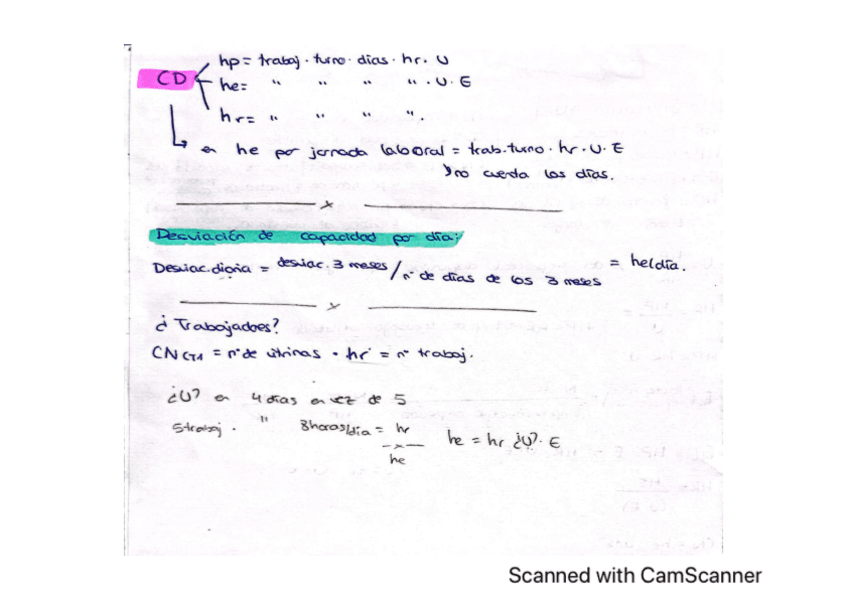 CD
hp = trabaj · turno · días · hr · U
he = " " " " · U · E
hr = " " " ".
en he por jornada laboral = trab. turno · hr · U · E
no cuenta los días.
x
Desviación de capacidad por día:
Desviac. diaria = desviac. 3 meses / nº de días de los 3 meses = he/día.
x
¿Trabajadores?
CN CT1 = nº de vitrinas · hr = nº trabaj.
¿U? en 4 días en vez de 5
5 trabaj · " 8 horas/día = hr
he
he = hr ¿U? · E
Scanned with CamScanner